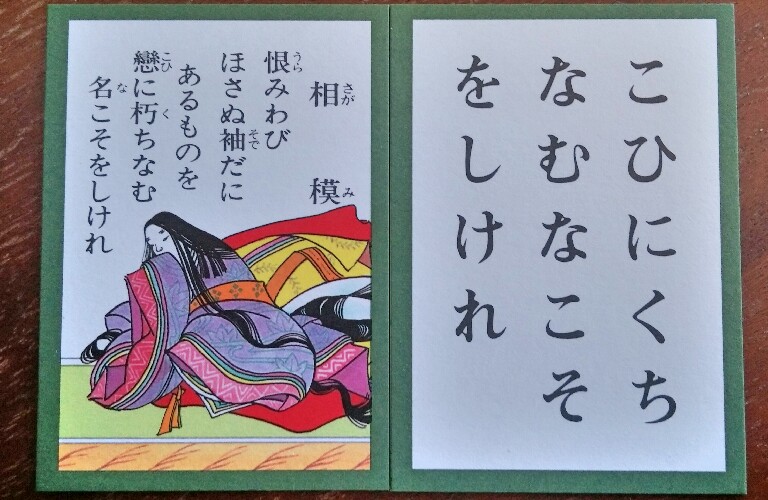 相模
恨みわび
ほさぬ袖だに
あるものを
戀に朽ちなむ
名こそをしけれ
さが
み
うら
そで
こひ
く
な
こひにくち
なむなこそ
をしけれ